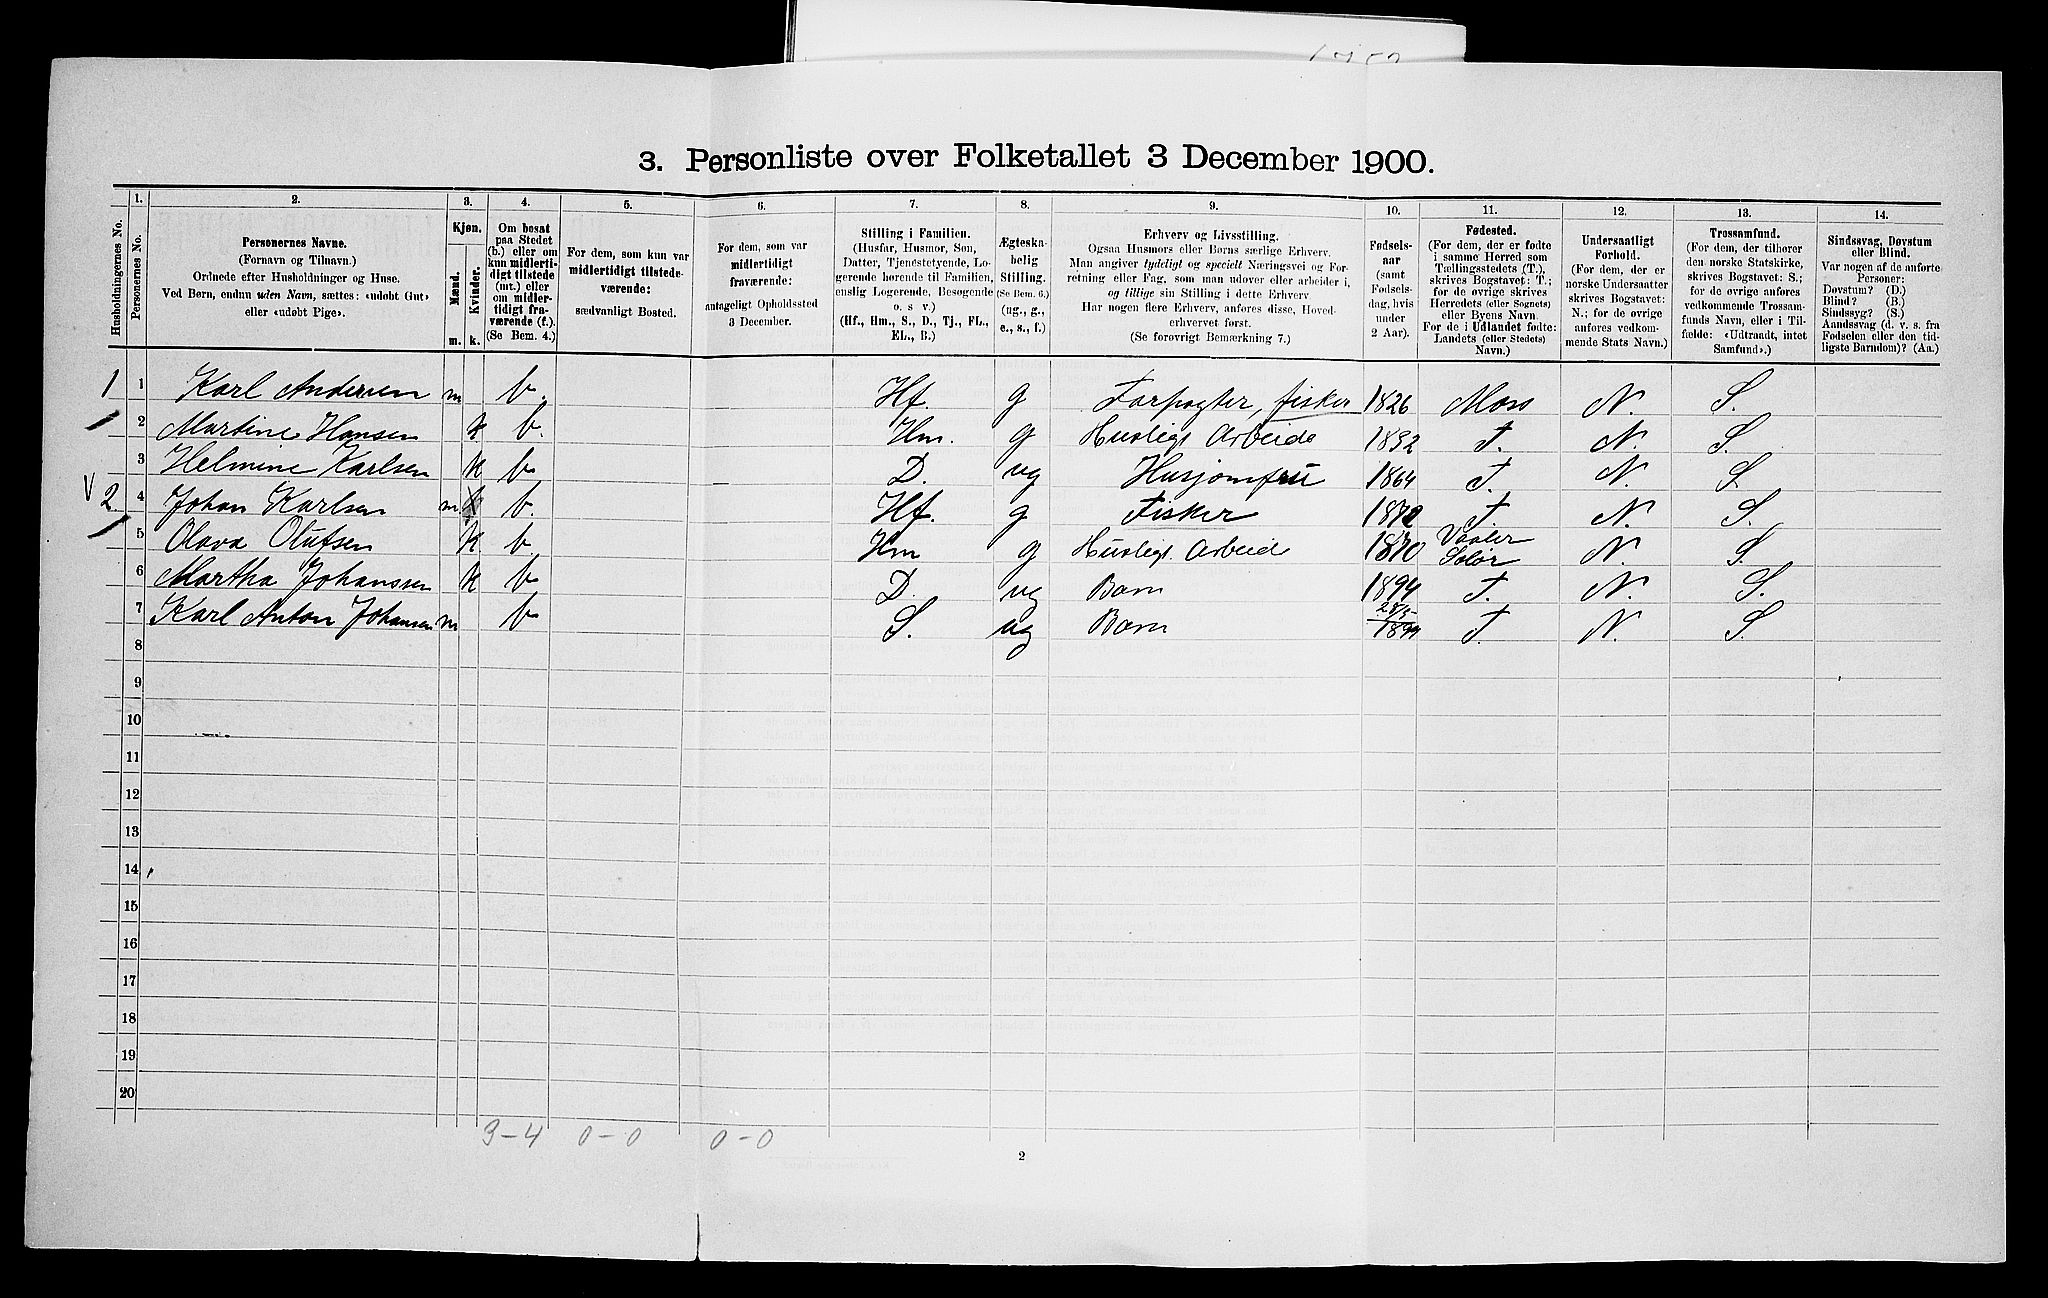 3. Personliste over Folketallet 3 December 1900.
Husholdningernes No.
1. Personernes No.
2. Personernes Navne. (Fornavn og Tilnavn.) Ordnede efter Husholdninger og Huse. Ved Børn, endnu uden Navn, sættes: «udøbt Gut» eller «udøbt Pige».
3. Kjøn. Mænd. m. Kvinder. k.
4. Om bosat paa Stedet (b.) eller om kun midlertidigt tilstede (mt.) eller om midlertidigt fraværende (f.). (Se Bem. 4.)
5. For dem, som kun var midlertidigt tilstedeværende: sædvanligt Bosted.
6. For dem, som var midlertidigt fraværende: antageligt Opholdssted 3 December.
7. Stilling i Familien. (Husfar, Husmor, Søn, Datter, Tjenstetyende, Logerende hørende til Familien, enslig Logerende, Besøgende o. s v.) (Hf., Hm., S., D., Tj., FL., EL., B.)
8. Ægteskabelig Stilling. (Se Bem. 6.) (ug., g., e., s., f.)
9. Erhverv og Livsstilling. Ogsaa Husmors eller Børns særlige Erhverv. Man angiver tydeligt og specielt Næringsvei og Forretning eller Fag, som man udøver eller arbeider i, og tillige sin Stilling i dette Erhverv. Har nogen flere Erhverv, anføres disse, Hovederhvervet først. (Se forøvrigt Bemærkning 7.)
10. Fødselsaar (samt Fødselsdag, hvis under 2 Aar).
11. Fødested. (For dem, der er fødte i samme Herred som Tællingsstedets (T.), skrives Bogstavet: T.; for de øvrige skrives Herredets (eller Sognets) eller Byens Navn. For de i Udlandet fødte: Landets (eller Stedets) Navn.)
12. Undersaatligt Forhold. (For dem, der er norske Undersaatter skrives Bogstavet: N.; for de øvrige anføres vedkommende Stats Navn.)
13. Trossamfund. (For dem, der tilhører den norske Statskirke, skrives Bogstavet: S.; for de øvrige anføres vedkommende Trossamfunds Navn, eller i Tilfælde: «Udtraadt, intet Samfund».)
14. Sindssvag, Døvstum eller Blind. Var nogen af de anførte Personer: Døvstum? (D.) Blind? (B.) Sindssyg? (S.) Aandssvag (d. v. s. fra Fødselen eller den tidligste Barndom)? (Aa.)
1 1 Karl Andersen m b. Hf. g Forpagter, fisker 1826 Moss N. S.
2 Martine Hansen k b. Hm. g Husligt Arbeide 1832 T. N. S.
3 Helmine Karlsen k b D. ug Husjomfru 1864 T. N. S.
2 4 Johan Karlsen m b. Hf. g Fisker 1872 T N. S.
5 Olava Olufsen k b Hm g Husligt Arbeid 1870 Vaaler Solør N. S.
6 Martha Johanssen k b D. ug Barn 1894 T. N. S.
7 Karl Anton Johansen m b S. ug Barn 1899 T. N. S
8
9
10
11
12
13
14
15
16
17
18
19
20
3-4 0-0 0-0
2